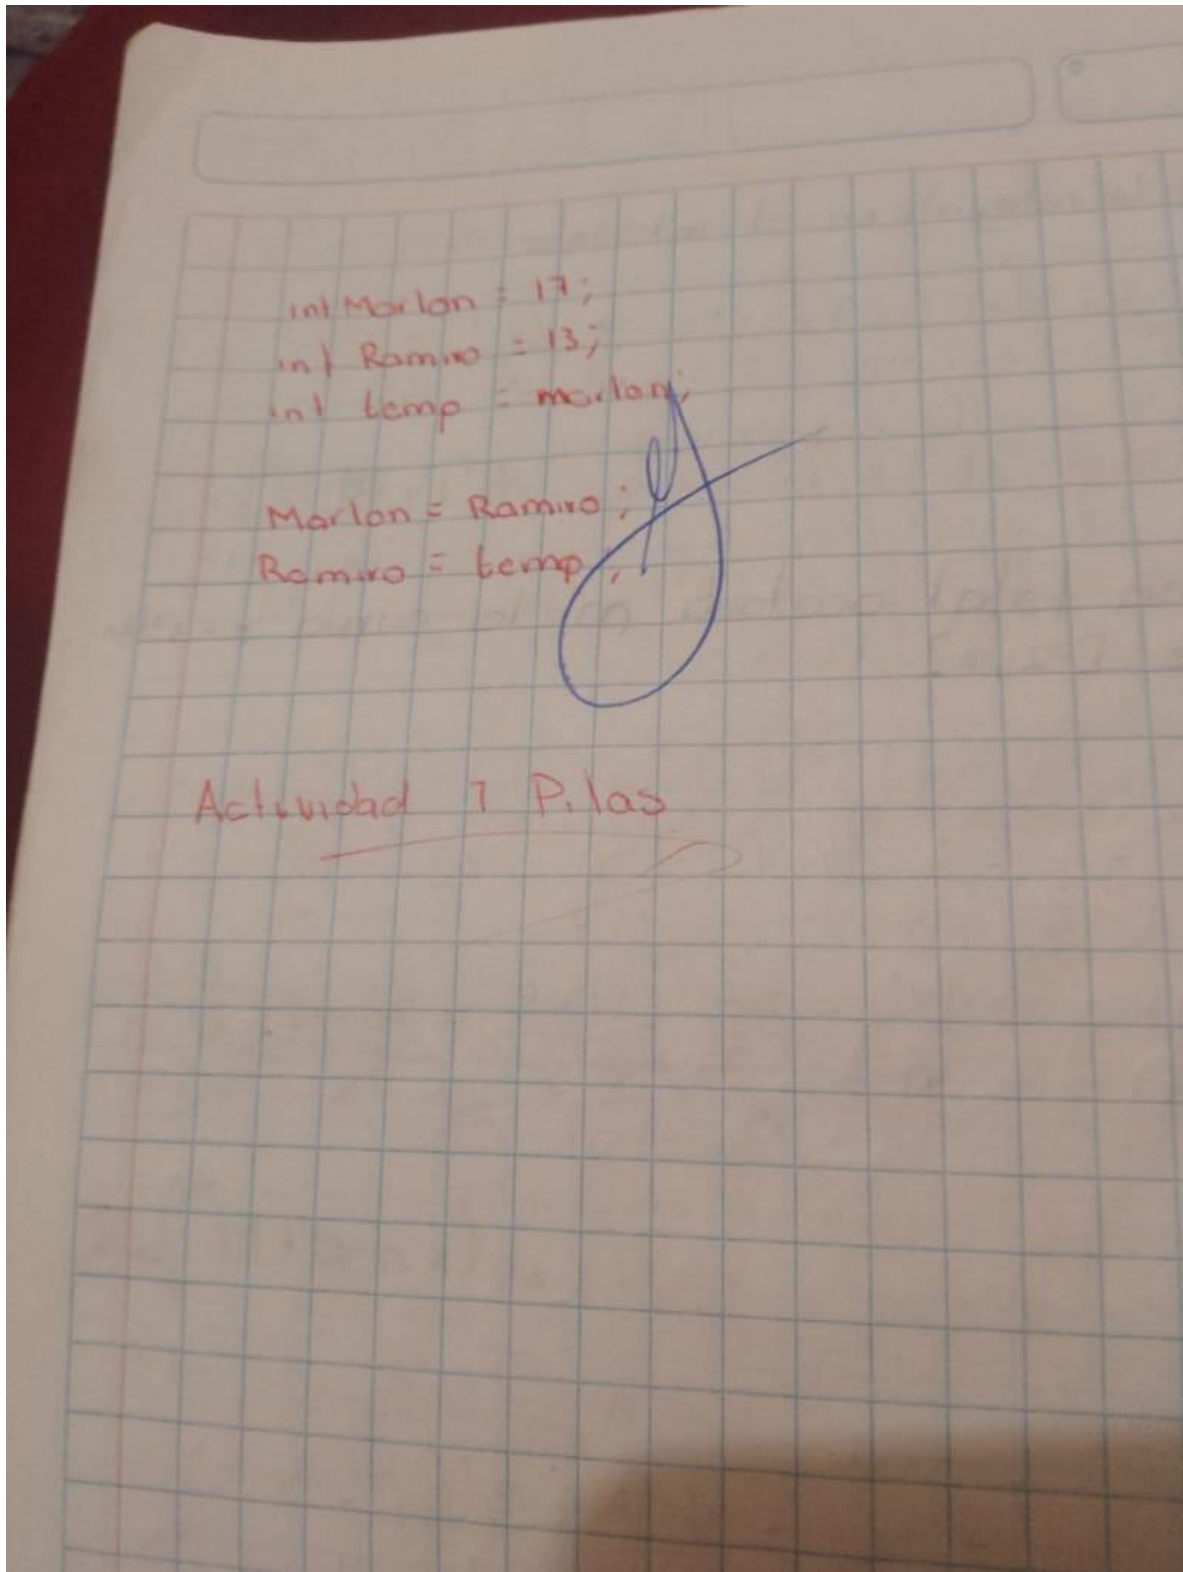 int Marlon = 17;
int Ramiro = 13;
int temp = marlon;
Marlon = Ramiro;
Ramiro = temp;
Actividad 7 Pilas